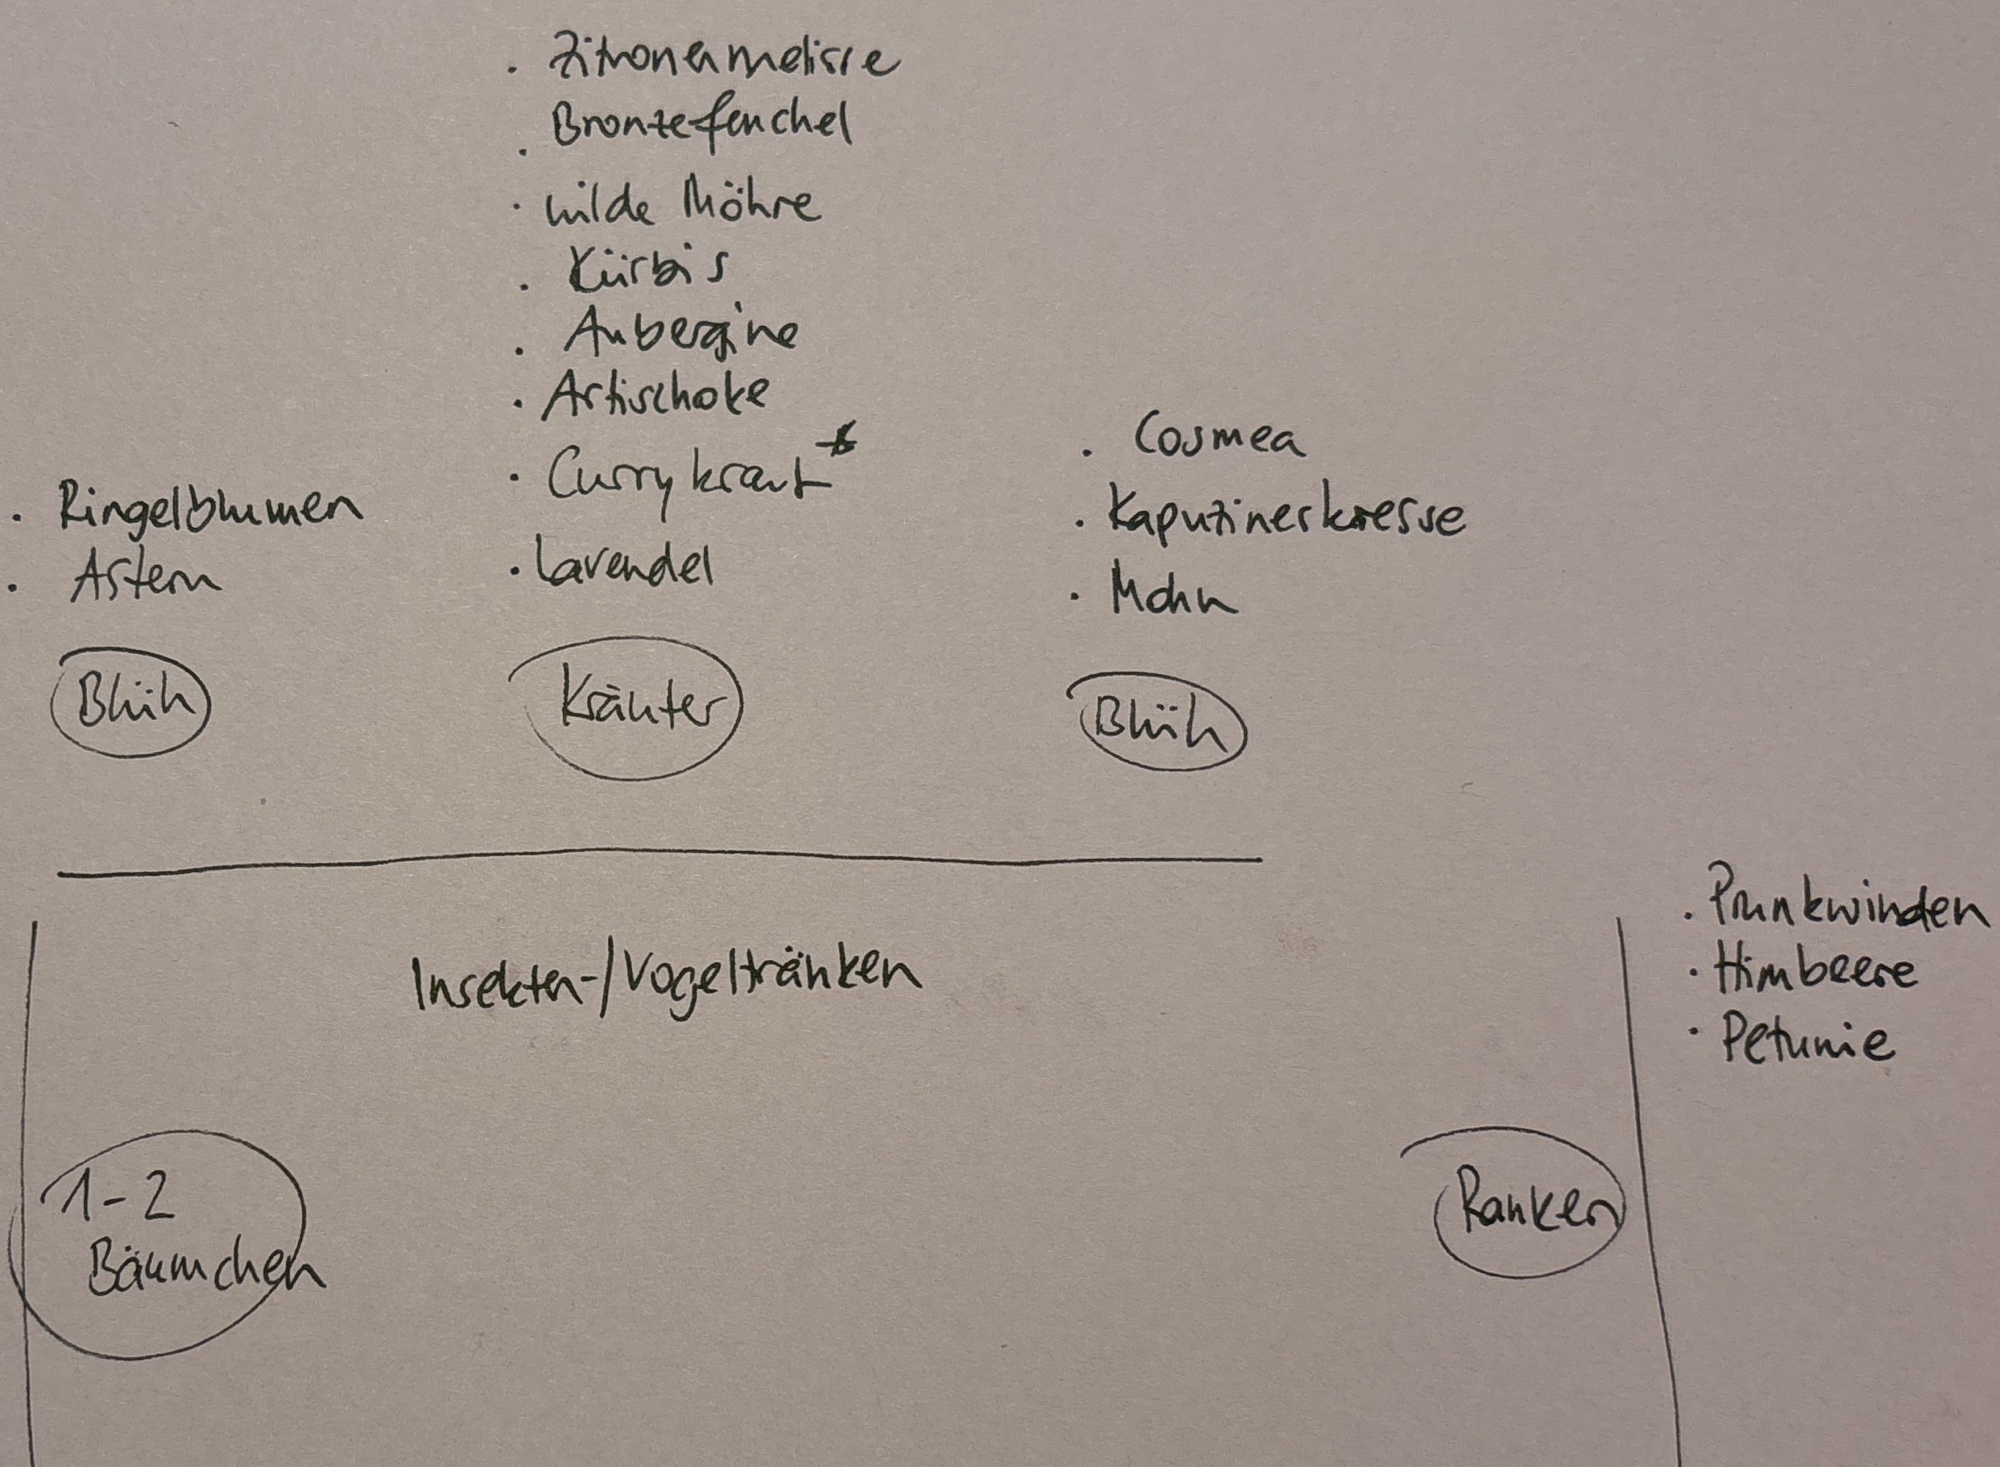 · Zitronenmelisse
· Bronzefenchel
· wilde Möhre
· Kürbis
· Aubergine
· Artischoke
· Currykraut *
· Lavendel
Kräuter
· Ringelblumen
· Astern
Blüh
· Cosmea
· Kapuzinerkresse
· Mohn
Blüh
Insekten-/Vogeltränken
· Prunkwinden
· Himbeere
· Petunie
Ranken
1-2
Bäumchen